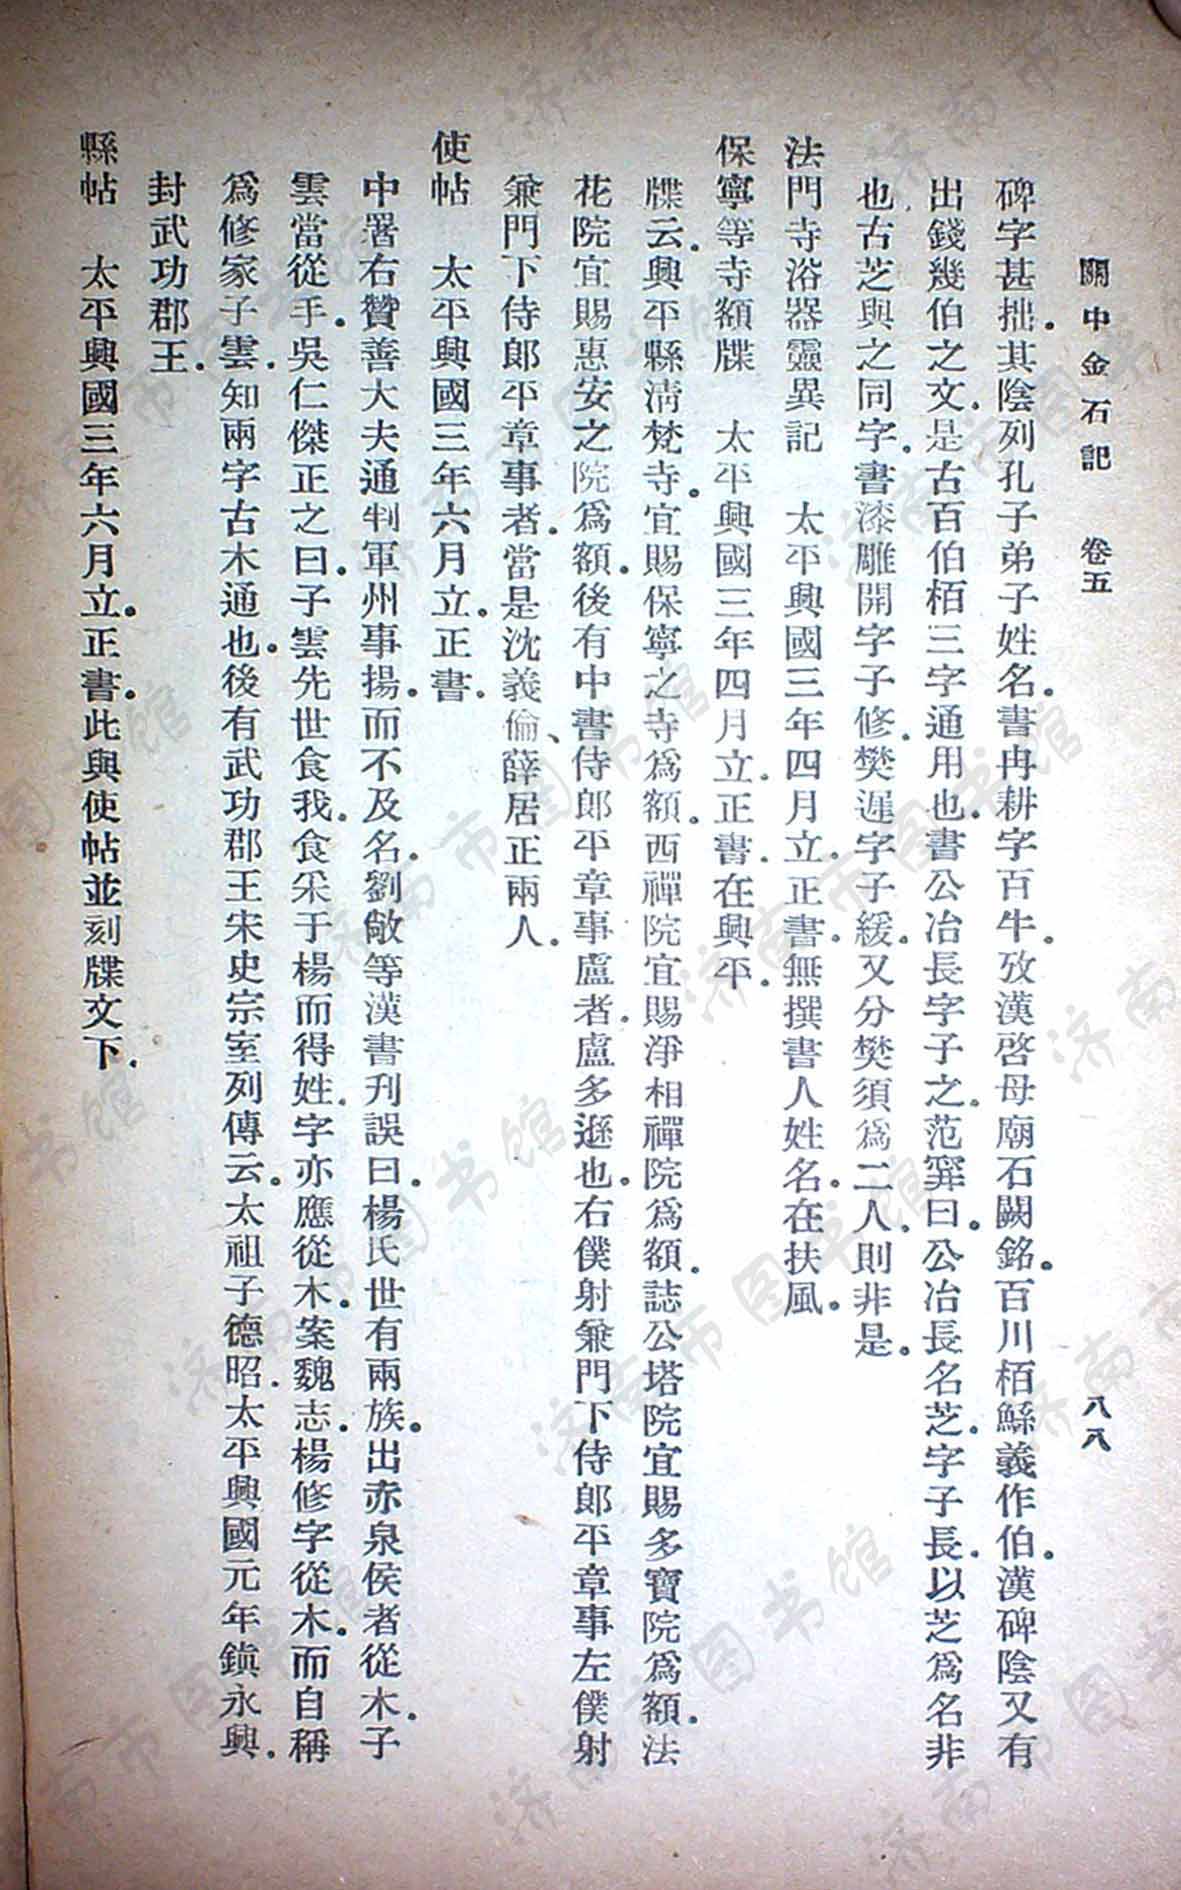 關中金石記　卷五　八八
碑字甚拙。其陰列孔子弟子姓名。書冉耕字百牛。攷漢啓母廟石闕銘。百川栢鯀義作伯。漢碑陰又有
出錢幾伯之文。是古百伯栢三字通用也。書公冶長字子之。范寗曰。公冶長名芝。字子長。以芝爲名非
也。古芝與之同字。書漆雕開字子修。樊遲字子緩。又分樊須爲二人。則非是。
法門寺浴器靈異記　太平興國三年四月立。正書。無撰書人姓名。在扶風。
保寧等寺額牒　太平興國三年四月立。正書。在興平。
牒云。興平縣清梵寺。宜賜保寧之寺爲額。西禪院宜賜淨相禪院爲額。誌公塔院宜賜多寶院爲額。法
花院宜賜惠安之院爲額。後有中書侍郎平章事盧者。盧多遜也。右僕射兼門下侍郎平章事左僕射
兼門下侍郎平章事者。當是沈義倫、薛居正兩人。
使帖　太平興國三年六月立。正書。
中署右贊善大夫通判軍州事揚。而不及名。劉敞等漢書刊誤曰。楊氏世有兩族。出赤泉侯者從木。子
雲當從手。吳仁傑正之曰。子雲先世食我。食采于楊而得姓。字亦應從木。案魏志。楊修字從木。而自稱
爲修家子雲。知兩字古木通也。後有武功郡王宋史宗室列傳云。太祖子德昭。太平興國元年鎭永興。
封武功郡王。
縣帖　太平興國三年六月立。正書。此與使帖並刻牒文下。
济南市图书馆